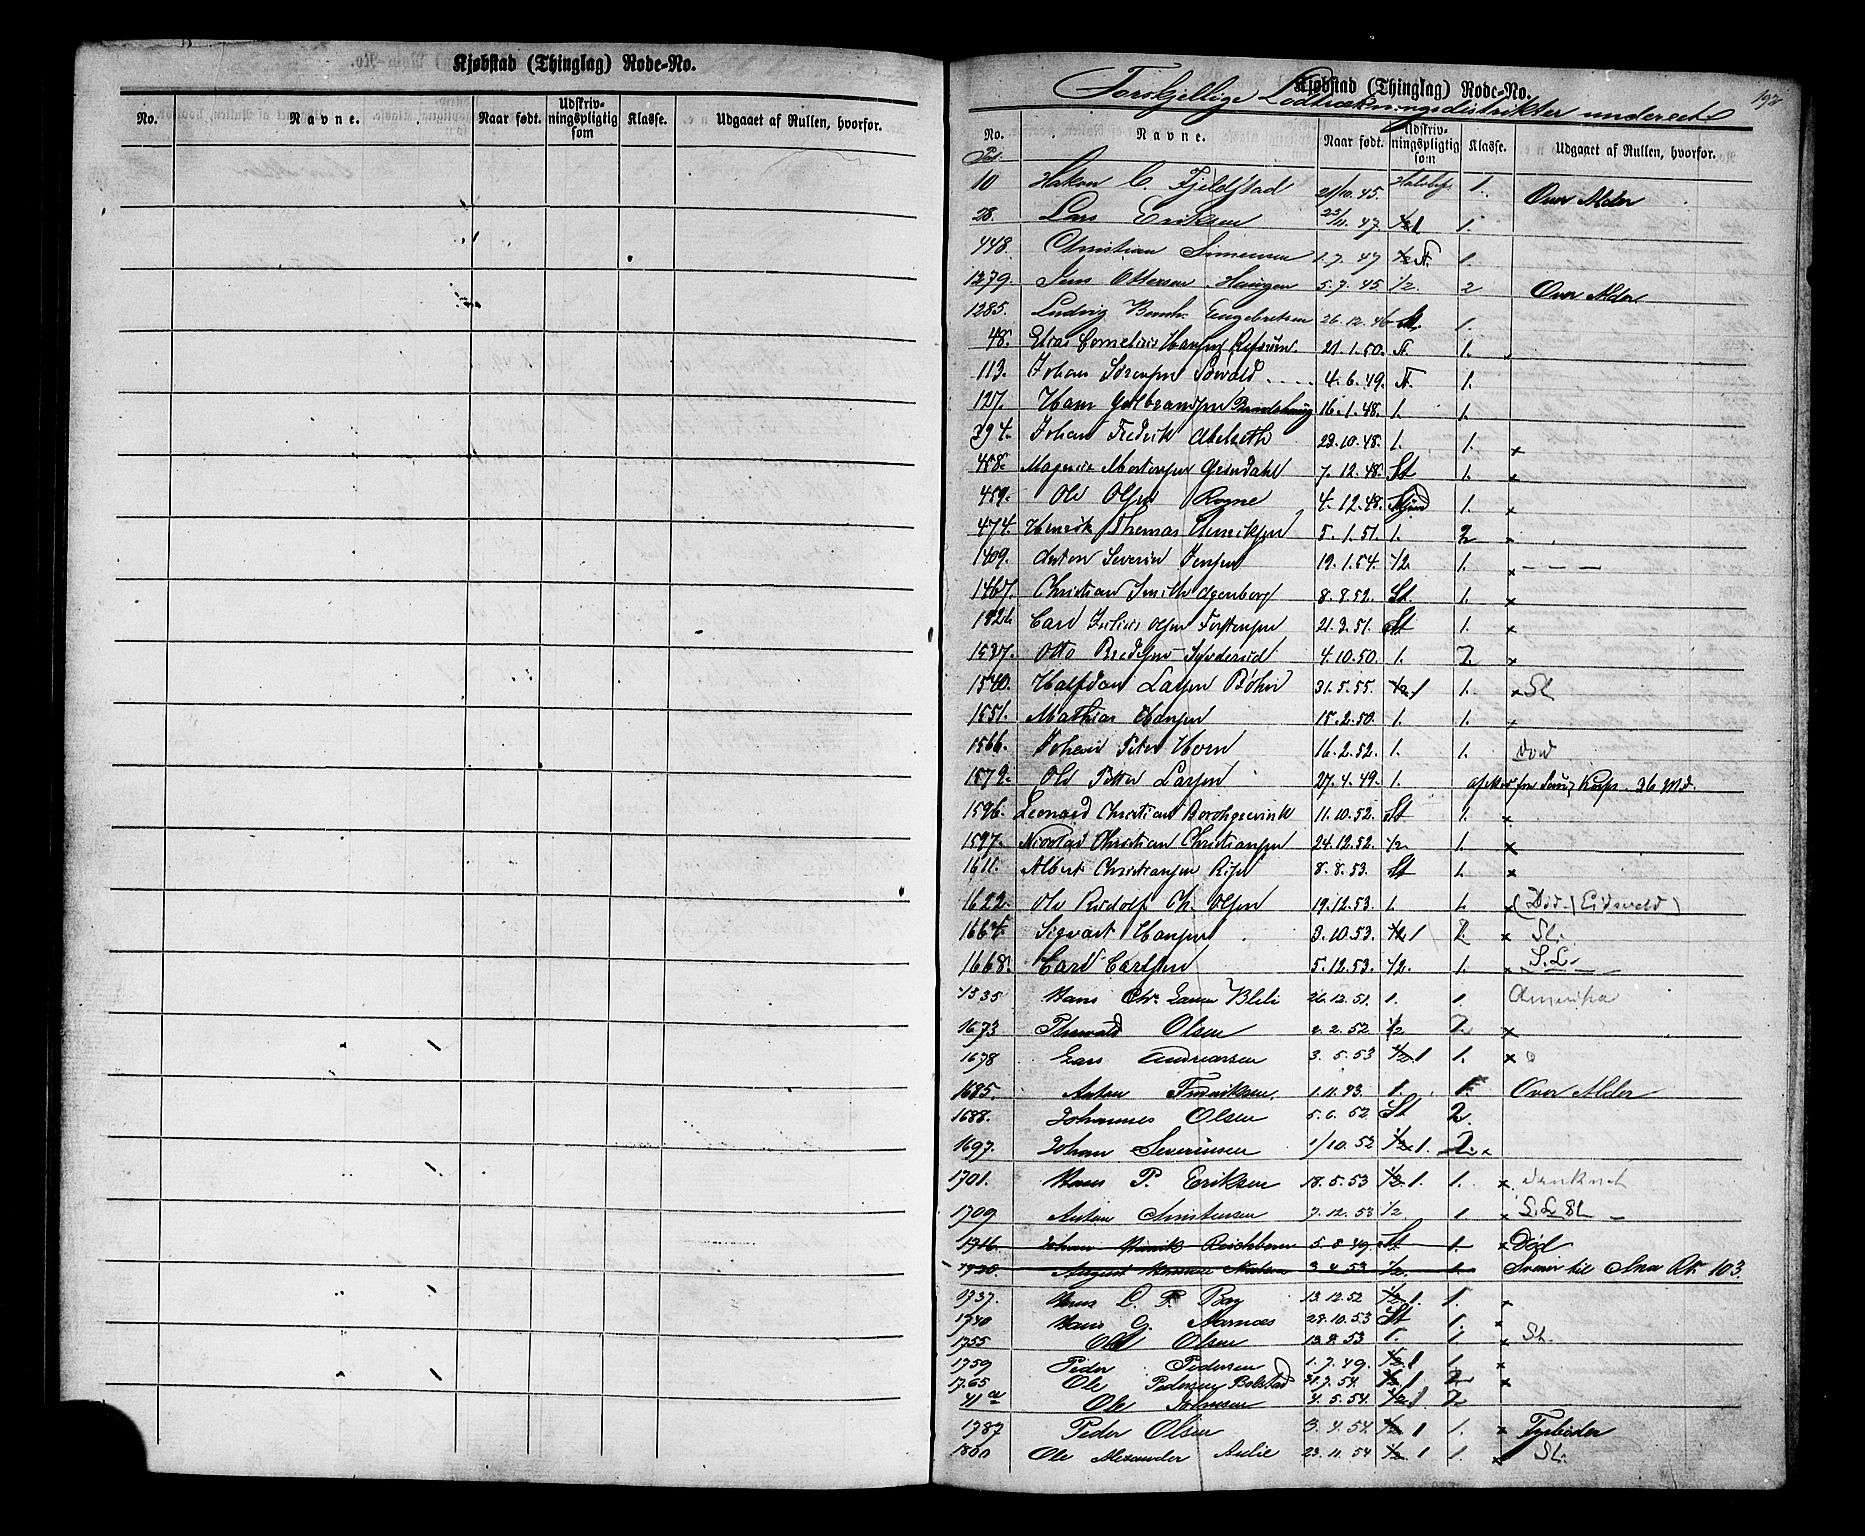 Kjøbstad (Thinglag) Rode-No.
No. Navne. Naar født. Udskriv-ningspligtig som Klasse. Udgaaet af Rullen, hvorfor.
192
Kjøbstad (Thinglag) Rode-No.
Forskjellige Lodtrækningsdistrikter
No. Navne. Naar født. Udskriv-ningspligtig som Klasse. Udgaaet af Rullen, hvorfor.
10 Hakon C. Fjeldstad 21/10. 45. 1. Over Alder
28. Lars Eriksen 23/11. 47 1/2 1 1.
448. Christian Simensen 1. 7. 47 1/2 1.
1279. Jens Ottersen Haugen 5. 7. 45. 1/2. 2 Over Alder
1285. Ludvig Bernh. Engebretsen 26. 12. 46 St. 1.
48. Elias Cornelius Hansen 21. 1. 50. St. 1.
113. Johan Sørensen 4. 6. 49. St. 1.
127. Hans Gulbrandsen 16. 1. 48. 1. 1.
394. Johan Fredrik 23. 10. 48. 1. 1. x
458. Magnus Mortensen Grindahl 7. 12. 48. St 1. x
459. Ole Olsen Rogne 4. 12. 48. 1. x
474. Henrik Thomas Henriksen 5. 1. 51. 1. 2 x
1409. Anton Severin Jensen 19. 1. 54. 1/2. 1. x — — —
1467. Christian Smith Agenberg 8. 8. 52. St. 1. x
Carl Julius Olsen Torstensen 21. 3. 51. St 1. x
1537. Otto 4. 10. 50. 1. 2. x
1540. Halfdan Larsen Bøhn 31. 5. 55. 1/2 1 1. x St
1551. Mathias Hansen 15. 2. 50. 1. 1.
1566. Johan Peter Horn 16. 2. 52. 1. 1. død
1572. Ole Petter Larsen 27. 4. 49. 1. Korps. 36 Md.
1596. Leonard Christian Borchgrevink 11. 10. 52. St 1. x
1597. Nicolai Christian Christiansen 24. 12. 52. 1/2 1. x
1611. Albert Christiansen 8. 8. 53. St 1. x
1622. Ole Rudolf Ch. Olsen 19. 12. 53. 1. 1. x (Død. Eidsvold)
1664. Sigvart Hansen 3. 10. 53. 1/2 1 2. x St.
1668. Carl Carlsen 5. 12. 53. 1/2. 1. x S. L.
1535 Hans Chr. 26. 12. 51. 1. 1. Amerika
1673 Thorvald Olsen 2. 2. 52 1/2 2. x
1678 Lars Andreassen 3. 5. 53 1/2 1 1. x
1685. Anton Fredriksen. 1. 11. 1. 1. Over Alder
1688. Johannes Olsen 5. 6. 52 St 2.
1697. Johan Severinsen 1/10. 53 1/2 1. 2. x
1701. Hans P. Eriksen 18. 5. 53 1/2 1. 1. x
1709 Anton Christensen 7. 12. 53 1/2 1 x S. L. St —
1716. Johan Henrik Reichborn 5. 8. 49. St 1. x Død
1730. August Nielsen 3. 4. 53 1/2. 1. til 103.
1737. Hans L. P. Bay 13. 12. 52 1/2 1. 1. x
1740 Hans G. Aarnæs 29. 10. 53 St 1. x
1755 Ole Olsen 13. 8. 53 1. 1. x St.
1759 Peder Pedersen 1. 7. 49. 1/2 1 1. x
1765 Ole Pedersen Bolstad 7. 54 1/2 1 2 x
41 a Ole 4. 5. 54. 1/2 1 2
1787 Peder Olsen 3. 4. 54. 1/2 1 1. x
1800 Ole Alexander 23. 11. 54 1/2 1 1. x St.